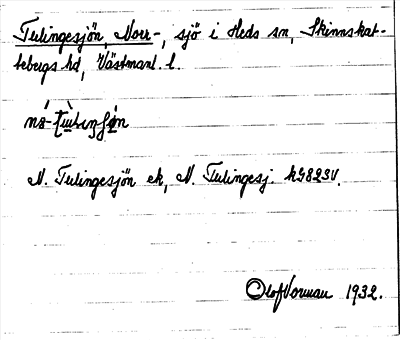 Tulingesjön, Norr-, sjö i Heds sn, Skinnskat-
tebergs hd, Västmanl. l.
N. Tulingesjön ek, N. Tulingesj. kG823V.
Olof Vorman 1932.